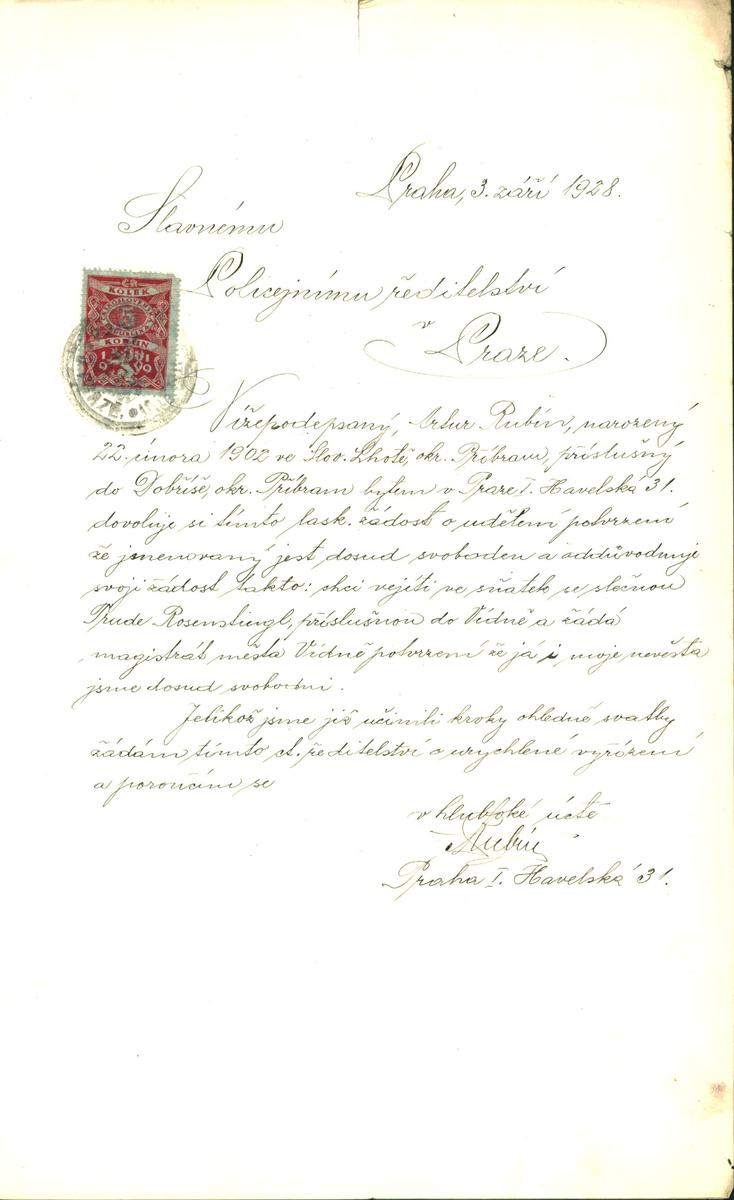 Praha, 3. září 1928.
Slavnému
Policejnímu ředitelství
v
Praze.
KOLEK
5
KORUN
Vížepodepsaný, Artur Rubín, narozený
22. února 1902 ve Slov. Lhotě, okr. Příbram, příslušný
do Dobříše, okr. Příbram bytem v Praze I. Havelská 31.
dovoluje si tímto lask. žádost o udělení potvrzení
že jmenovaný jest dosud svoboden a oddůvodnuje
svoji žádost takto: chci vejíti ve sňatek se slečnou
Trude Rosenstingl, příslušnou do Vídně a žádá
magistrát města Vídně potvrzení že já i moje nevěsta
jsme dosud svobodni.
Jelikož jsme již učinili kroky ohledně svatby
žádám tímto ct. ředitelství o urychlené vyřízení
a poroučím se
v hluboké úctě
Rubín
Praha I. Havelská 31.